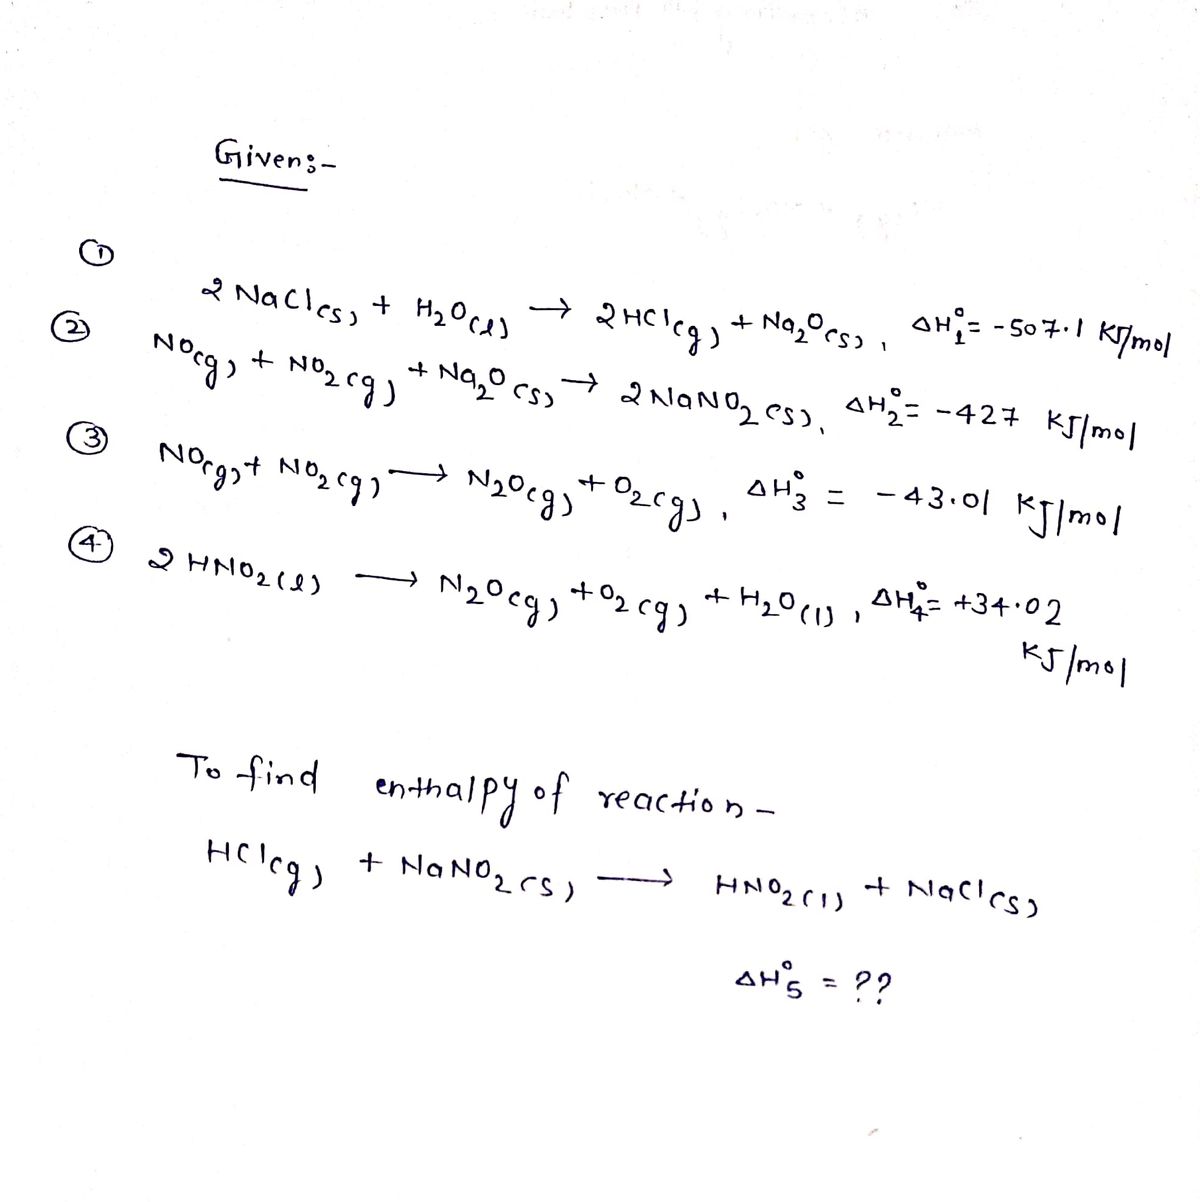 Given:-
①
2 NaCl(s) + H₂O(l) → 2HCl(g) + Na₂O(s), ΔH₁° = -507.1 KJ/mol
②
NO(g) + NO₂(g) + Na₂O(s) → 2 NaNO₂(s), ΔH₂° = -427 KJ/mol
③ NO(g) + NO₂(g) → N₂O(g) + O₂(g), ΔH₃° = -43.01 KJ/mol
④ 2 HNO₂(l) → N₂O(g) + O₂(g) + H₂O(l), ΔH₄° = +34.02
KJ/mol
To find enthalpy of reaction -
HCl(g) + NaNO₂(s) → HNO₂(l) + NaCl(s)
ΔH₅° = ??